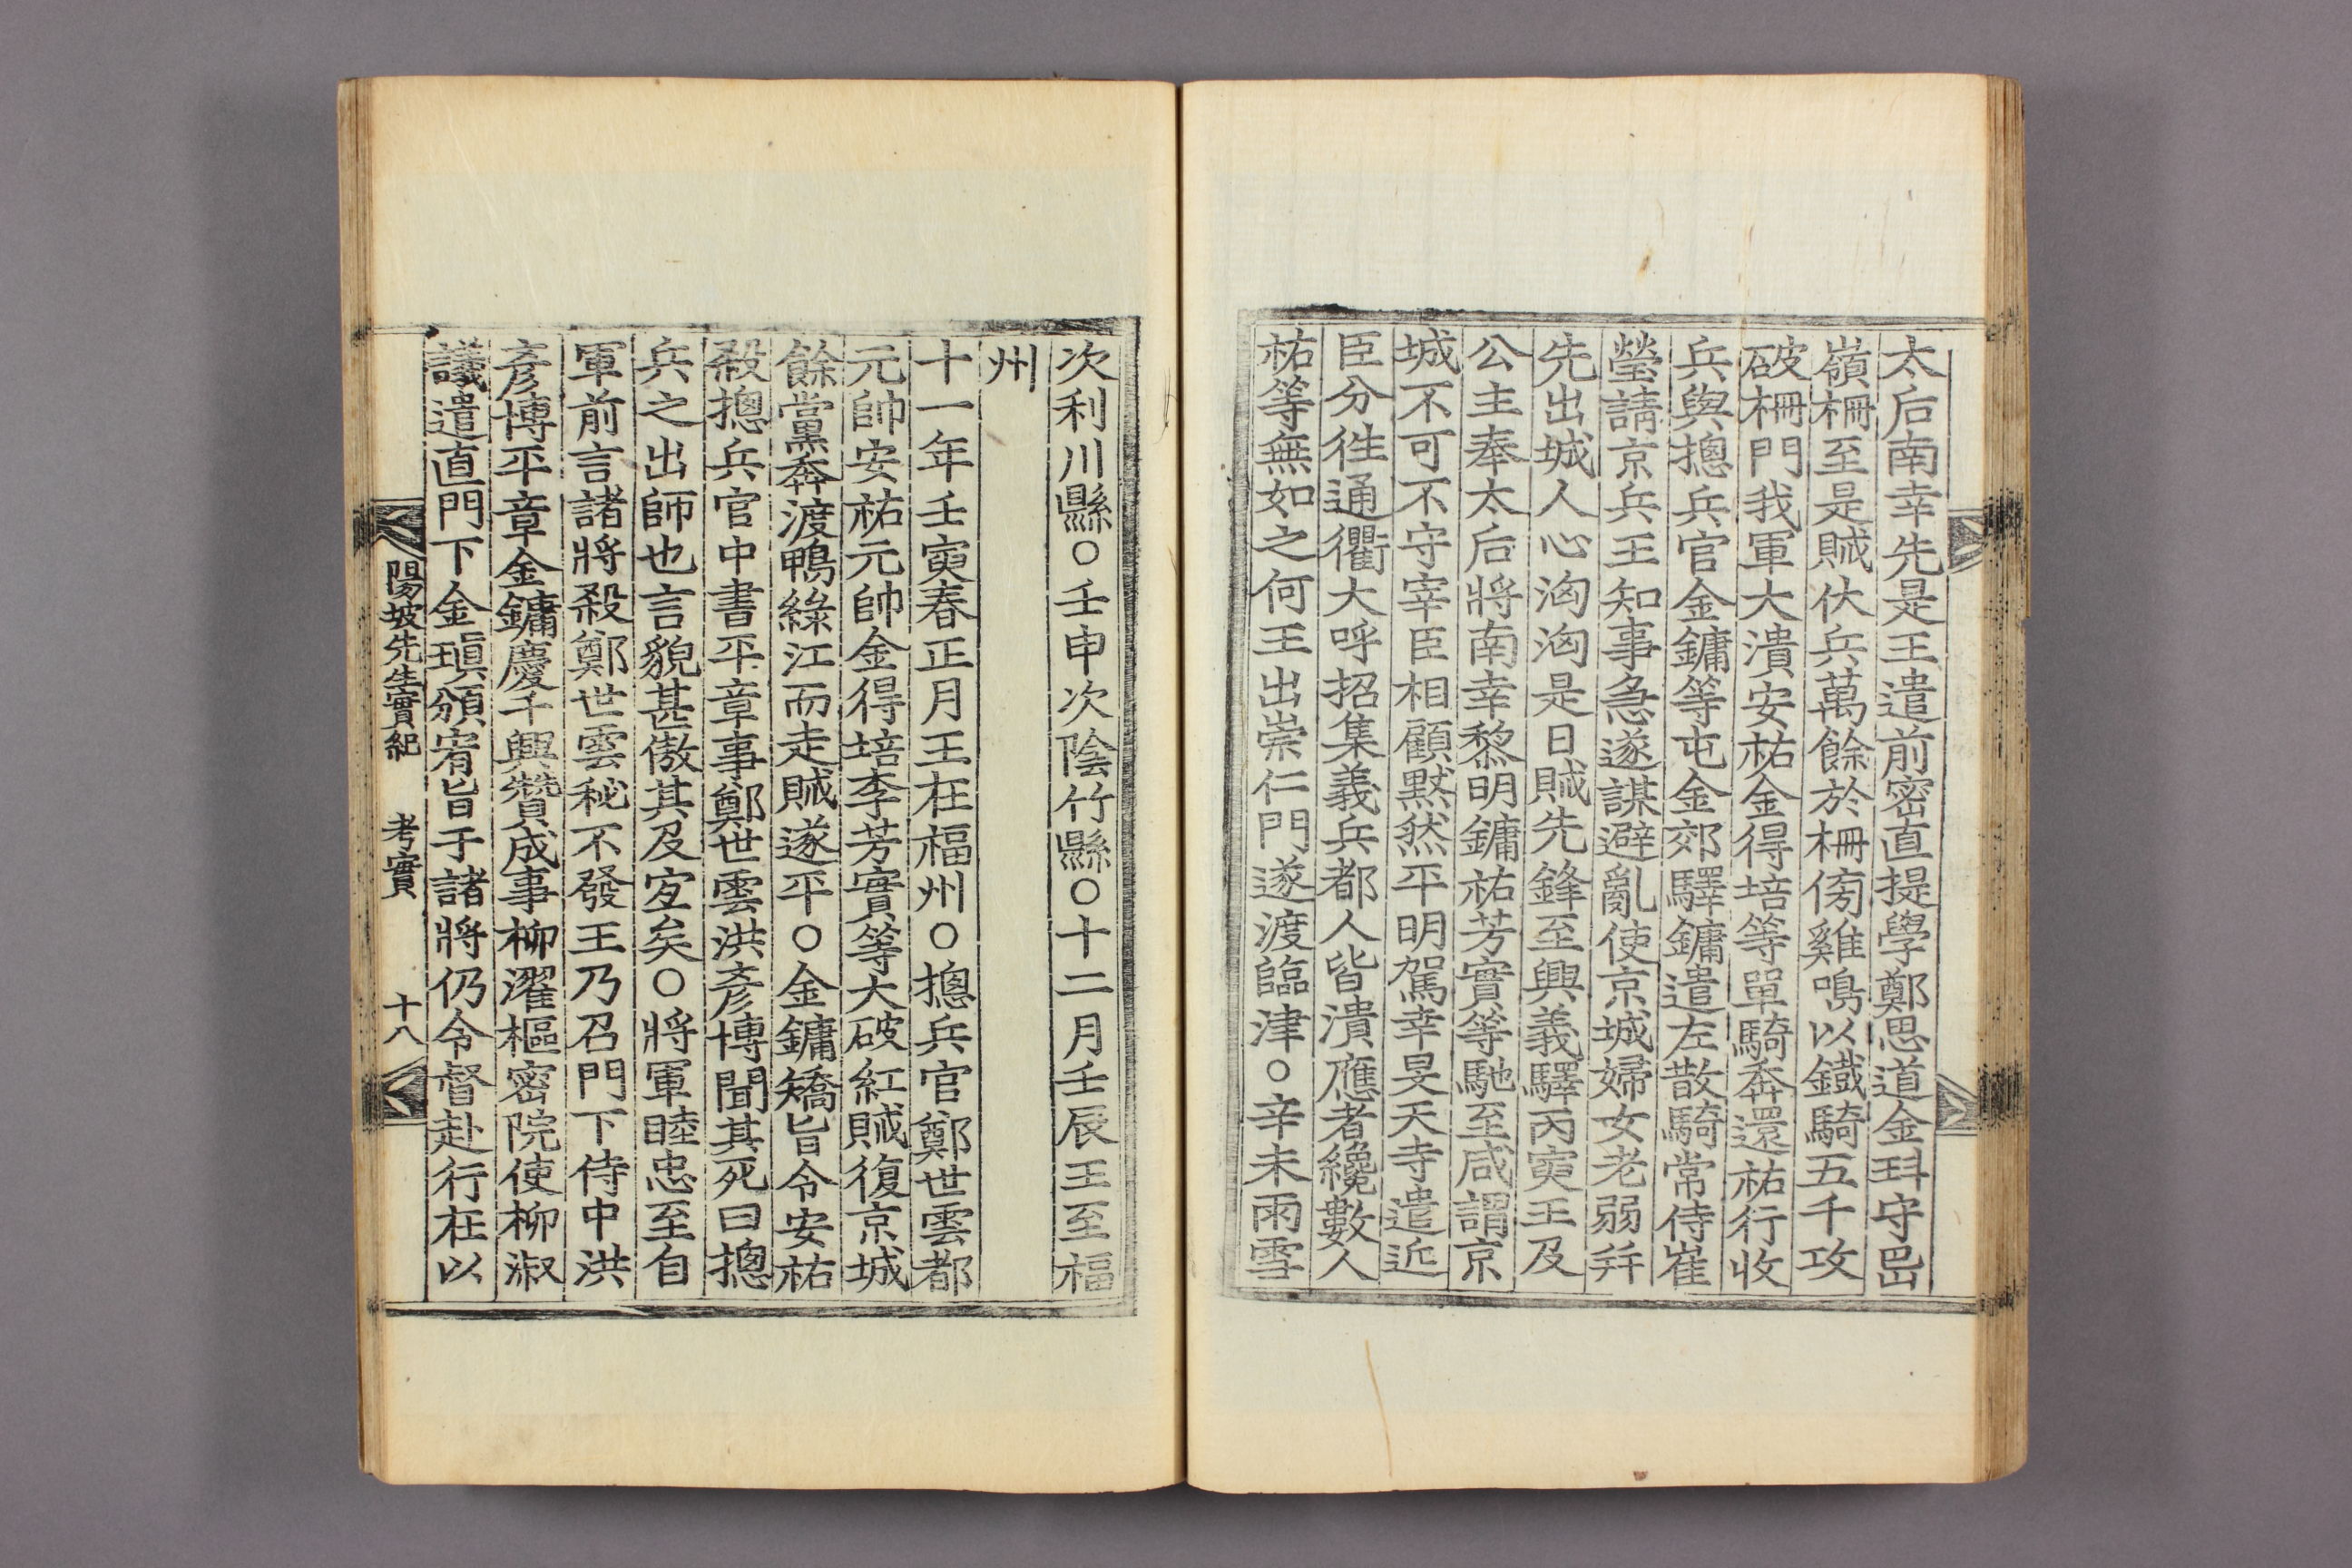 太后南幸先是王遣前密直提學鄭思道金玤守岊
嶺柵至是賊伏兵萬餘於柵傍雞鳴以鐵騎五千攻
破柵門我軍大潰安祐金得培等單騎奔還祐行收
兵與摠兵官金鏞等屯金郊驛鏞遣左散騎常侍崔
瑩請京兵王知事急遂謀避亂使京城婦女老弱幷
先出城人心洶洶是日賊先鋒至興義驛丙寅王及
公主奉太后將南幸黎明鏞祐芳實等馳至咸謂京
城不可不守宰臣相顧默然平明駕幸旻天寺遣近
臣分徃通衢大呼招集義兵都人皆潰應者纔數人
祐等無如之何王出崇仁門遂渡臨津○辛未雨雪
次利川縣○壬申次陰竹縣○十二月壬辰王至福
州
十一年壬寅春正月王在福州○摠兵官鄭世雲都
元帥安祐元帥金得培李芳實等大破紅賊復京城
餘黨奔渡鴨綠江而走賊遂平○金鏞矯旨令安祐
殺摠兵官中書平章事鄭世雲洪彥博聞其死曰摠
兵之出師也言貌甚傲其及宜矣○將軍睦忠至自
軍前言諸將殺鄭世雲秘不發王乃召門下侍中洪
彥博平章金鏞慶千興贊成事柳濯樞密院使柳淑
議遣直門下金瑱頒宥旨于諸將仍令督赴行在以
陽坡先生實紀 考實 十八